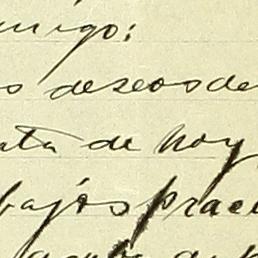 migo:
s deseos de
ata de hoy
bajos prac